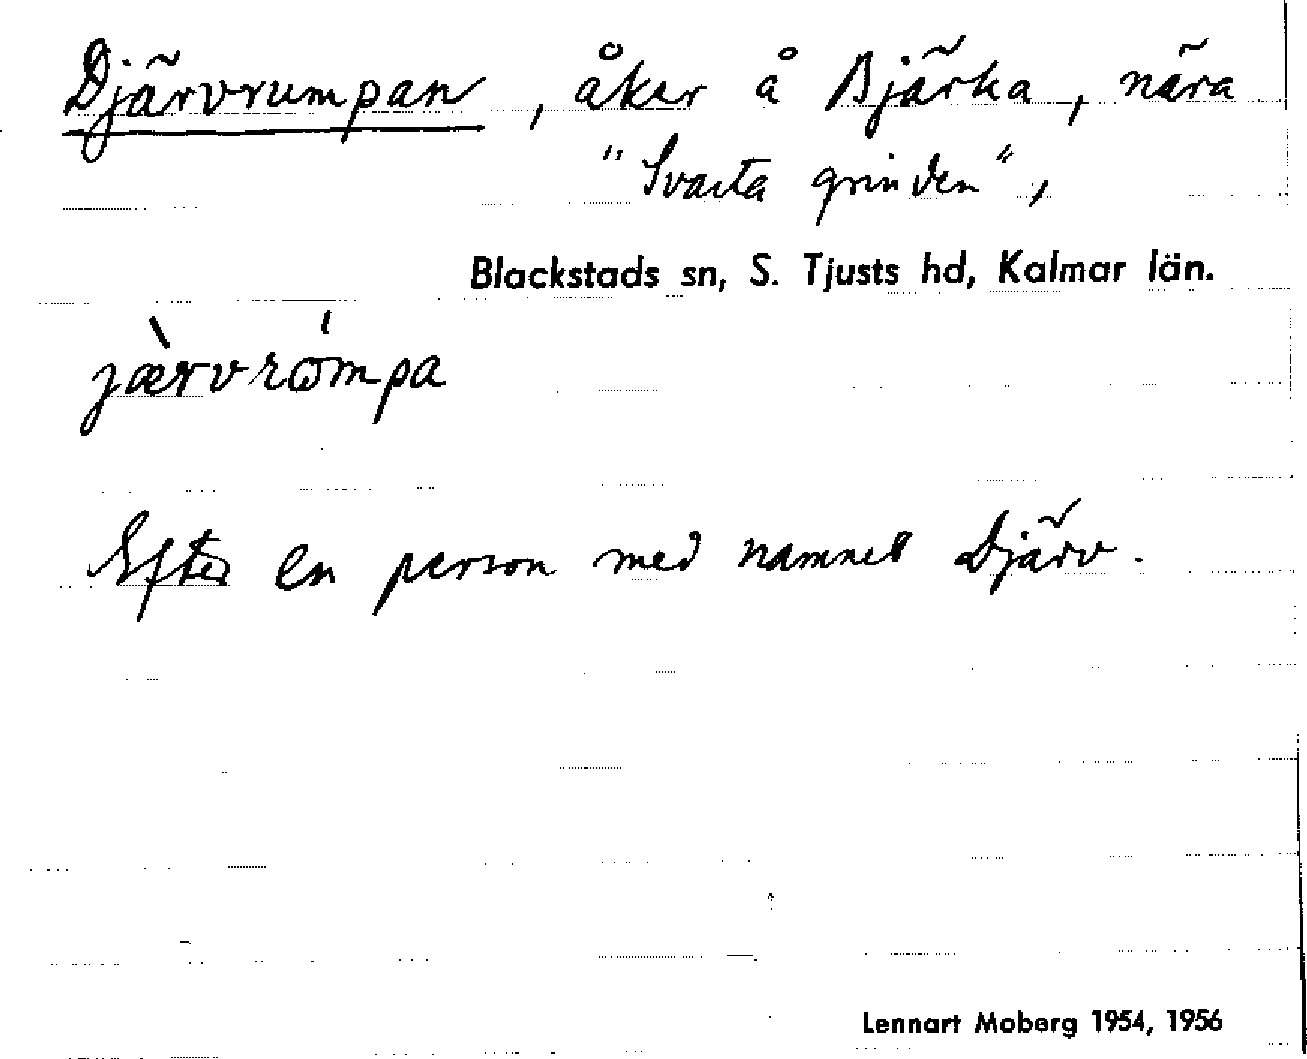 Djärvrumpan, åker å Bjärka, nära
"Svarta grinden",
Blackstads sn, S. Tjusts hd, Kalmar län.
jæ̀rvrώmpa
Efter en person med namnet Djärv.
Lennart Moberg 1954, 1956